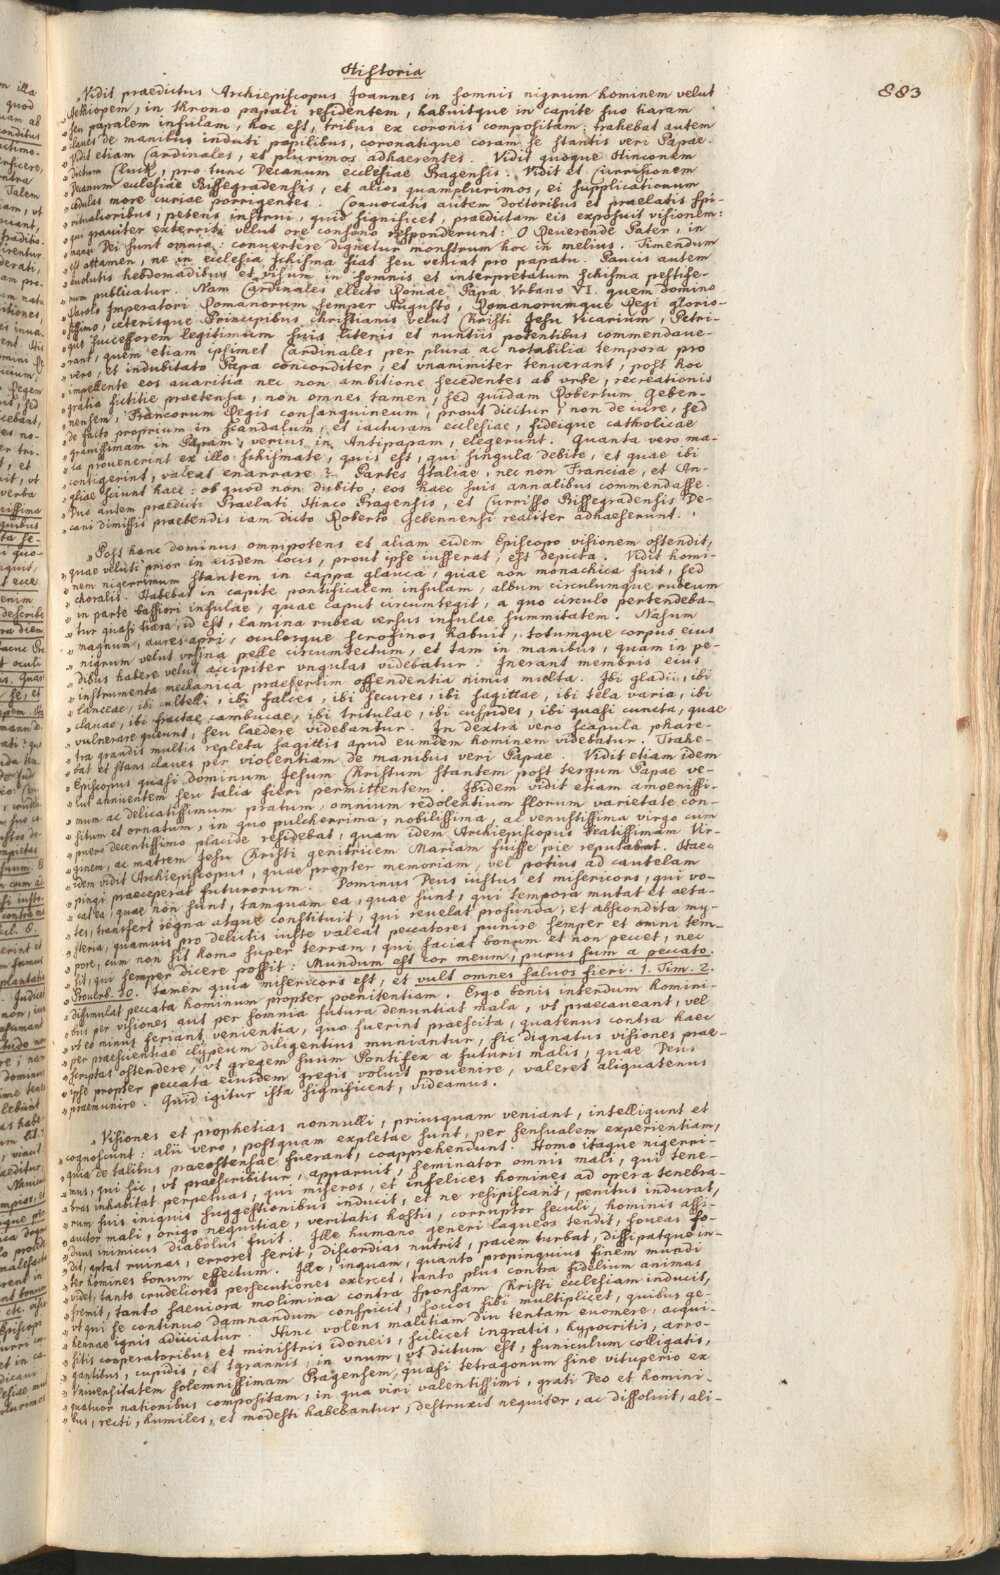 Historia
883
„Vidit praedictus Archiepiscopus Joannes in somnis nigrum hominem velut
„Aethiopem, in throno papali residentem, habuitque in capite suo tiaram
„seu papalem insulam, hoc est, tribus ex coronis compositam: trahebat autem
„claves de manibus induti papilibus, coronatique coram se stantis veri Papae.
„Vidit etiam Cardinales, et plurimos adhaerentes. Vidit quoque Hinconem
„dictum Cluck, pro tunc Decanum ecclesiae Pragensis. Vidit et Curvissonem
„Decanum ecclesiae Bissegradensis, et alios quamplurimos, ei supplicationum
„cedulas more curiae porrigentes. Convocatis autem doctoribus et praelatis spi-
„ritualioribus, petens instrui, quid significet, praedictam eis exposuit visionem:
„qui graviter exterriti velut ore consono responderunt: O Reverende Pater, in
„manu Dei sunt omnia: convertere dignetur monstrum hoc in melius. Timendum
„est attamen, ne in ecclesia schisma fiat seu veniat pro papatu. Paucis autem
„evolutis hebdomadibus et visum in somnis et interpretatum schisma pestife-
„rum publicatur. Nam Cardinales electo Romae Papa Vrbano VI. quem Domino
„Carolo Imperatori Romanorum semper Augusto, Romanorumque Regi glorio-
„sissimo, ceterisque Principibus christianis velut Christi Jesu Vicarium, Petri-
„que successorem legitimum suis litteris et nuntiis potentibus commendave-
„rant, quem etiam ipsimet Cardinales per plura ac notabilia tempora pro
„vero, et indubitato Papa conconditer, et vnanimiter tenuerant, post hoc
„impellente eos avaritia nec non ambitione secedentes ab vrbe, recreationis
„gratia fictitie praetensa, non omnes tamen, sed quidam Robertum Geben-
„nensem, Francorum Regis consanquineum, prout dicitur, non de iure, sed
„de facto proprium in scandalum, et iacturam ecclesiae, fideique catholicae
„gravissimam in Papam, verius in Antipapam, elegerunt. Quanta vero ma-
„la provenerint ex illo schismate, quis est, qui singula debite, et quae ibi
„contigerint, valeat enarrare? Partes Italiae, nec non Franciae, et An-
„gliae sciunt haec: ob quod non dubito, eos haec suis annalibus commendasse.
„Duo autem praedicti Praelati Hinco Pragensis, et Curvisso Bissegradensis De-
„cani dimissis praebendis iam dicto Roberto Gebennensi realiter adhaeserunt.
„Post hanc dominus omnipotens et aliam eidem Episcopo visionem ostendit,
„quae veluti prior in eisdem locis, prout ipse iusserat, est depicta. Vidit homi-
„nem nigerrimum stantem in cappa glauca, quae non monachica fuit, sed
„choralis. Habebat in capite pontificalem insulam, album circulumque rubeum
„in parte bassiori insulae, quae caput circumtegit, a quo circulo pertendeba-
„tur quasi tiara, id est, lamina rubea versus insulae summitatem. Nasum
„magnum, aurei apri, oculosque scrosinos habuit, totumque corpus eius
„nigrum velut vrsina pelle circumtectum, et tam in manibus, quam in pe-
„dibus habere velut accipiter vngulas videbatur. Inerant membris eius
„instrumenta mechanica praesertim offendentia nimis multa. Ibi gladii, ibi
„lanceae, ibi cultelli, ibi falces, ibi secures, ibi sagittae, ibi tela varia, ibi
„clavae, ibi fractae cambucae, ibi tritulae, ibi cuspides, ibi quasi cuncta, quae
„vulnerare queunt, seu laedere videbantur. In dextra vero scapula phare-
„tra grandis multis repleta sagittis apud eumdem hominem videbatur. Trahe-
„bat et stans claves per violentiam de manibus veri Papae. Vidit etiam idem
„Episcopus quasi dominum Jesum Christum stantem post tergum Papae ve-
„lut annuentem seu talia fieri permittentem. Ibidem vidit etiam amoenissi-
„mum ac delicatissimum pratum, omnium redolentium florum varietate con-
„situm et ornatum, in quo pulcherrima, nobilissima, ac venustissima virgo cum
„puero decentissimo placide residebat, quam idem Archiepiscopus Beatissimam Vir-
„ginem, ac matrem Jesu Christi genitricem Mariam fuisse pie reputabat. Haec
„idem vidit Archiepiscopus, quae propter memoriam, vel potius ad cautelam
„pingi praeceperat futurorum. Dominus Deus iustus et misericors, qui vo-
„cat ea, quae non sunt, tamquam ea, quae sunt, qui tempora mutat et aeta-
„tes, transfert regna atque constituit, qui revelat profunda, et abscondita my-
„steria, quamuis pro delictis iuste valeat peccatores punire semper et omni tem-
„pore, cum non sit homo super terram, qui faciat bonum et non peccet, nec
„sit, qui semper dicere possit: Mundum est cor meum, purus sum a peccato.
„Prouerb. 20. tamen quia misericors est, et vult omnes saluos fieri. 1. Tim. 2.
„dissimulat peccata hominum propter poenitentiam. Ergo bonis interdum homini-
„bus per visiones aut per somnia futura denuntiat mala, vt praecaveant, vel
„vt eo minus feriant venientia, quo fuerint praescita, quatenus contra haec
„per praescientiae clypeum diligentius muniantur, sic dignatus visiones prae-
„scriptas ostendere, vt gregem suum Pontifex a futuris malis, quae Deus
„ipse propter peccata eiusdem gregis voluit provenire, valeret aliquatenus
„praemunire. Quid igitur ista significent, videamus.
„Visiones et prophetias nonnulli, priusquam veniant, intelligunt et
„cognoscunt: alii vero, postquam expletae sunt, per sensualem experientiam,
„quia de talibus praeostensae fuerant, coapprehendunt. Homo itaque nigerri-
„mus, qui sic, vt praescribitur, apparuit, seminator omnis mali, qui tene-
„bras inhabitat perpetuas, qui miseros, et infelices homines ad opera tenebra-
„rum suis iniquis suggestionibus inducit, et ne resipiscant, penitus indurat,
„autor mali, origo nequitiae, veritatis hostis, corruptor seculi, hominis assi-
„duus inimicus diabolus fuit. Ille humano generi laqueos tendit, foveas fo-
„dit, aptat ruinas, errores serit, discordias nutrit, pacem turbat, dissipatque in-
„ter homines bonum effectum. Ille, inquam, quanto propinquius finem mundi
„videt, tanto crudeliores persecutiones exercet, tanto plus contra fidelium animas
„fremit, tanto saeviora molimina contra sponsam Christi ecclesiam inducit,
„vt qui se continuo damnandum conspicit, socios sibi multiplicet, quibus ge-
„hennae ignis adiiciatur. Hinc volens malitiam diu tentam evomere, acqui-
„sitis cooperatoribus et ministris idoneis, scilicet ingratis, hypocritis, arro-
„gantibus, cupidis, et tyrannis, in vnum, vt dictum est, funiculum colligatis,
„Vniversitatem solemnissimam Pragensem, quasi tetragonum sine vituperio ex
„quatuor nationibus compositam, in qua viri valentissimi, grati Deo et homini-
„bus, recti, humiles, et modesti habebantur, destruxit nequiter, ac dissoluit, ali-